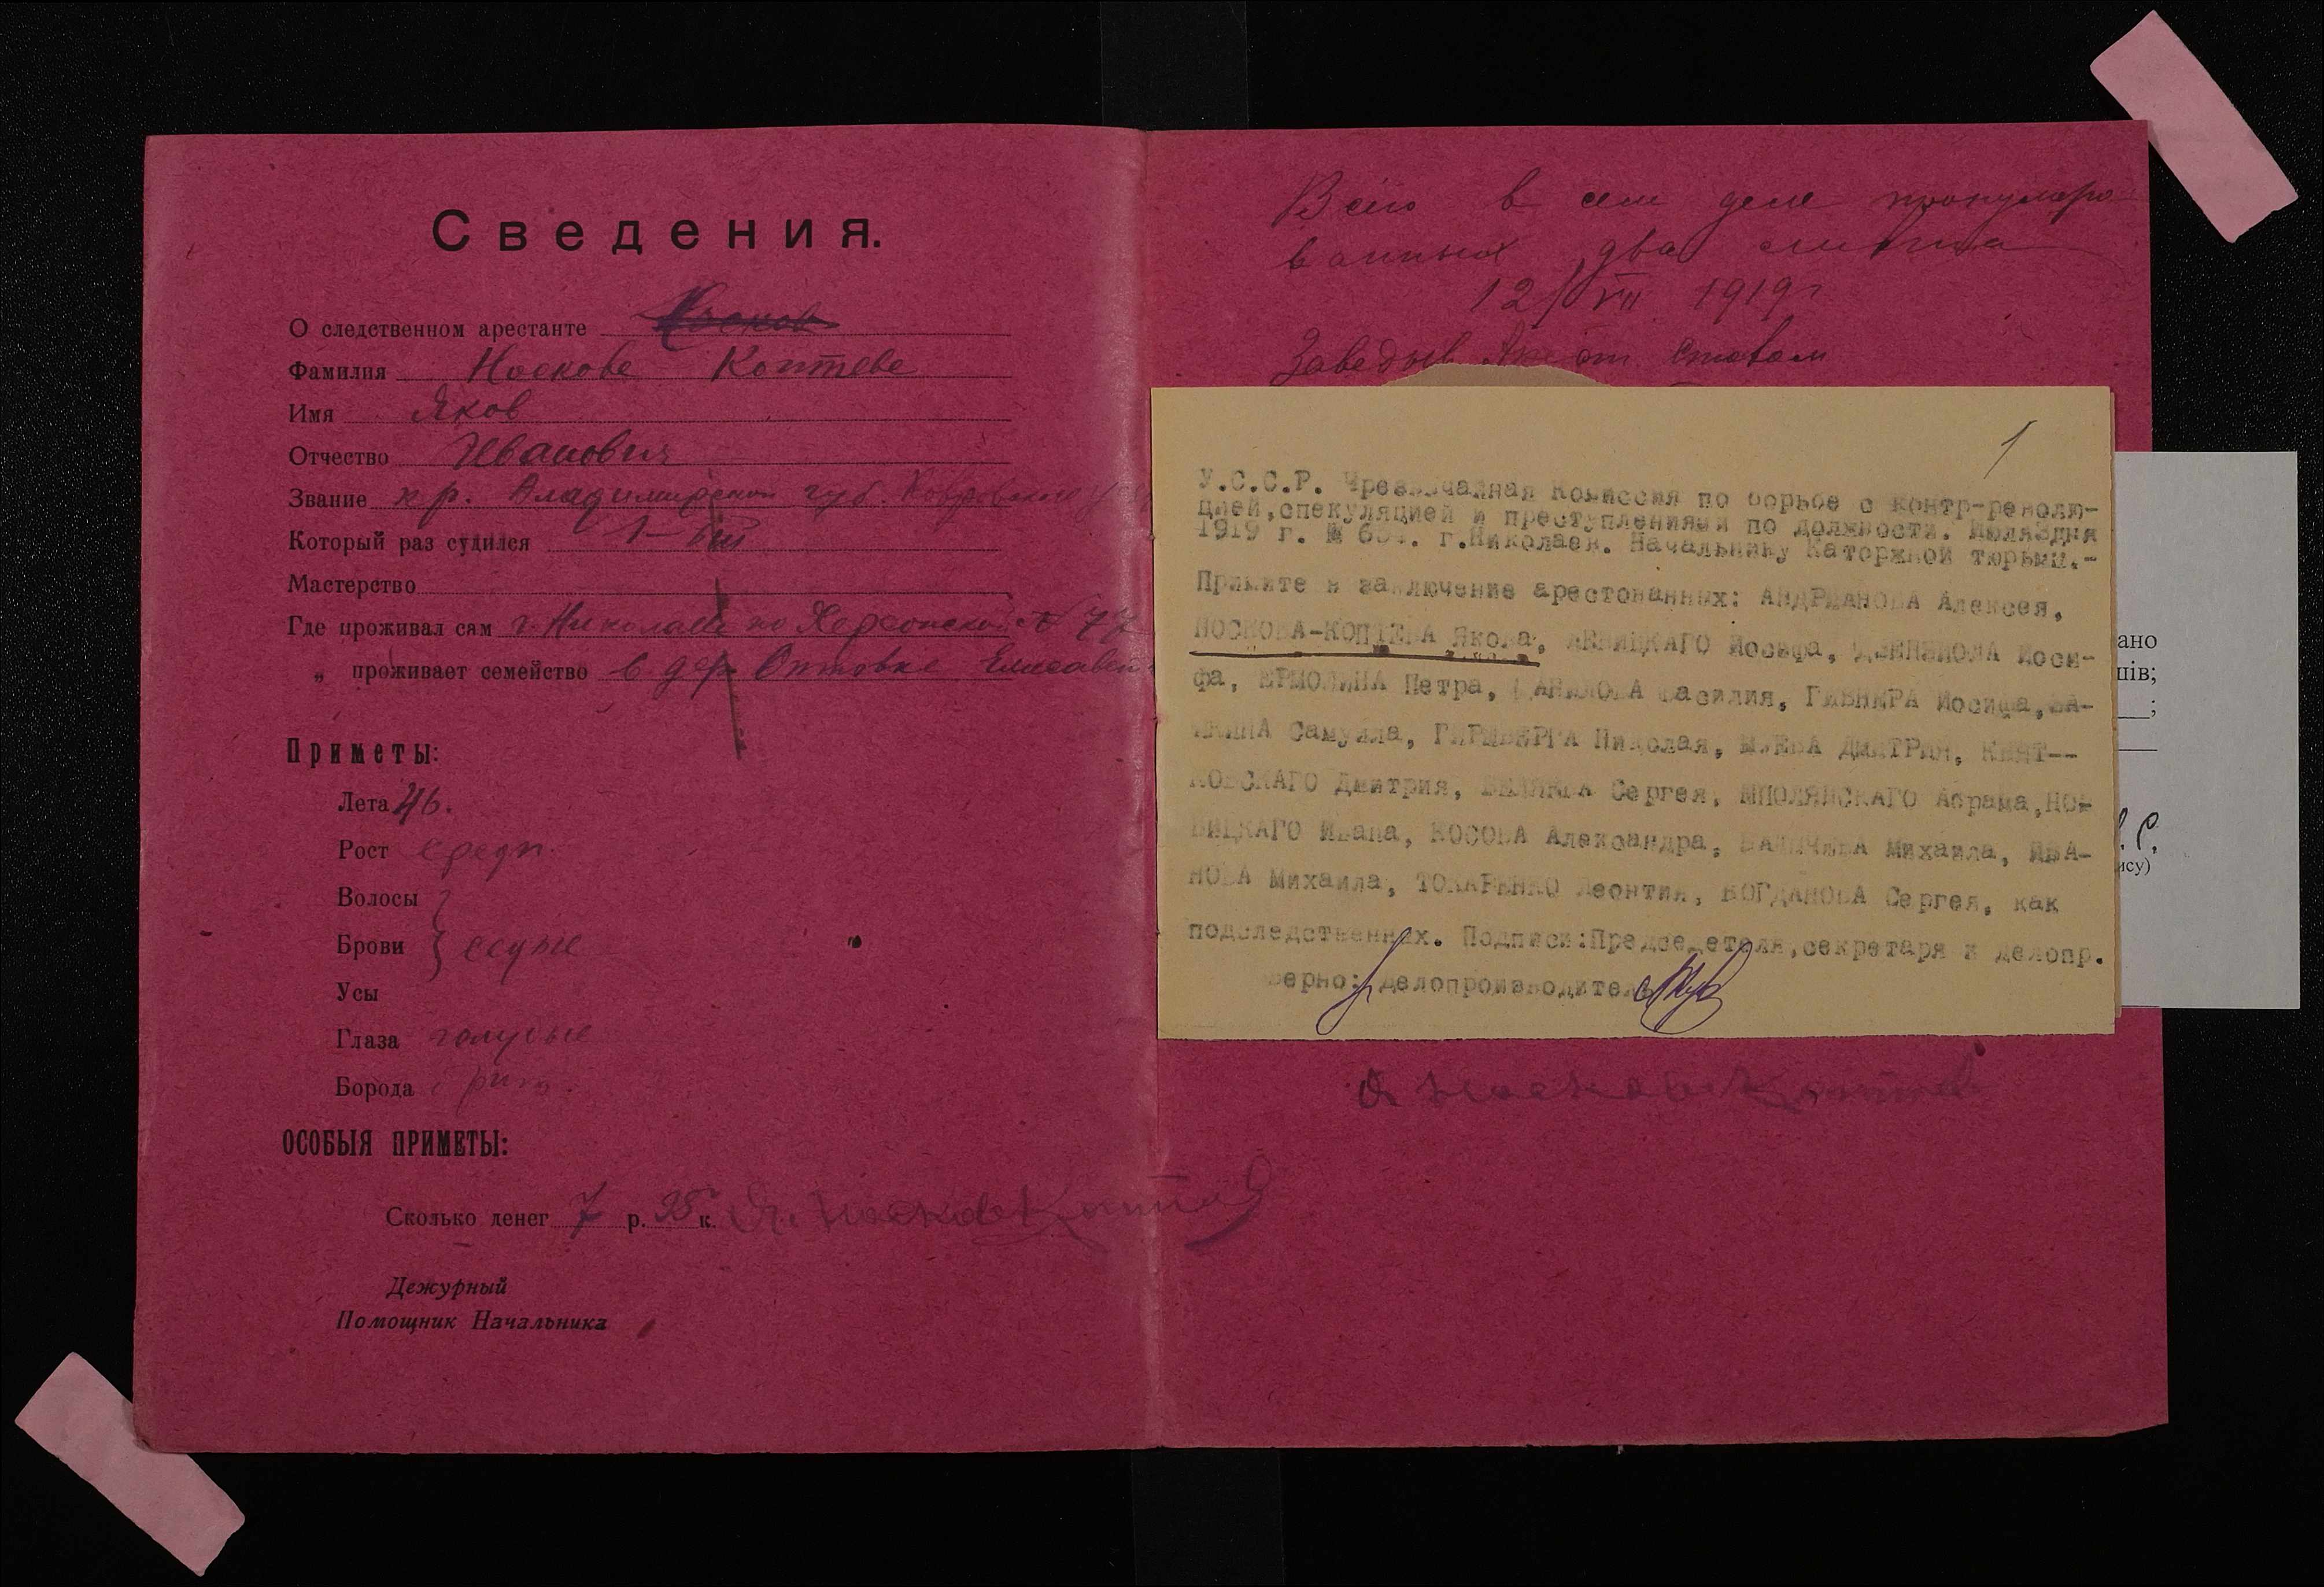 Сведения.
О следственном арестанте Носков
Фамилия Носкове Коптеве
Имя Яков
Отчество Иванович
Звание кр. Владимирской губ. Ковровского у
Который раз судился 1-ый
Мастерство
Где проживал сам г. Николаев по Херсонской 77
„ проживает семейство в дер. Елисавет
Приметы:
Лета 46.
Рост средн.
Волосы
Брови } седые
Усы
Глаза голубые
Борода
ОСОБЫЯ ПРИМЕТЫ:
Сколько денег 7 р. 95 к. Носков Коптев
Дежурный
Помощник Начальника
Всего в сем деле пронумеро-
ванных два листа
12/VII 1919г
Заведыв
1
У.С.С.Р. Чрезвычайная Комиссия по борьбе с контр-револю-
цией,спекуляцией и преступлениями по должности. Июля3дня
1919 г. № г.Николаев. Начальнику Каторжной тюрьмы.-
Примите в заключение арестованных: АНДРИАНОВА Алексея,
НОСКОВА-КОПТЕВА Якова, ЛЕВИЦКАГО Иосифа, Иоси-
фа, ЕРМОЛИНА Петра, ДАНИЛОВА Василия, Иосифа,
Самуила, ГИРШБЕРГА Николая, ДМИТРИЯ, КВЯТ--
КОВСКАГО Дмитрия, БЕЛЯЕВА Сергея, Абрама,НО-
ВИЦКАГО Ивана, КОСОВА Александра, Михаила, ИВА-
НОВА Михаила, ТОКАРЕНКО Леонтия, БОГДАНОВА Сергея, как
подследственных. Подписи:Председетеля,секретаря и делопр.
Верно: Делопроизводитель
Носков Коптев
ано
пів;
;
ису)